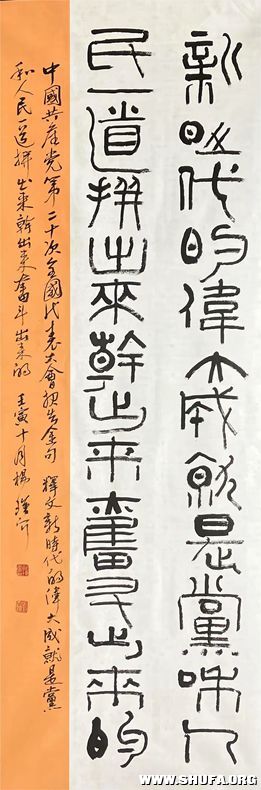 新时代的伟大成就是黨和人
民一道拼出來幹出来奮鬥出来的
中國共產党第二十次全國代表大會报告金句 釋文新時代的偉大成就是黨
和人民一道拼出来幹出来奮斗出来的 壬寅十月楊
WWW.SHUFA.ORG